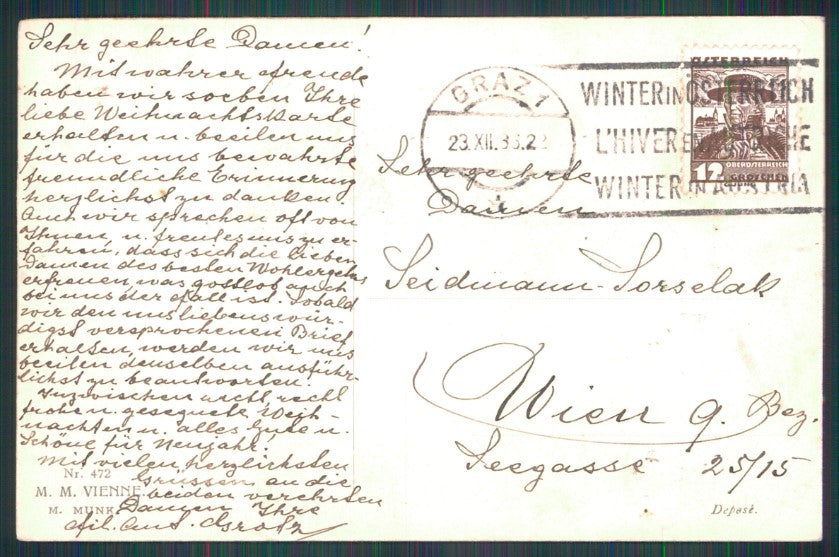 Sehr geehrte Damen!
Mit wahrer Freude
haben wir soeben Ihre
liebe Weihnachtskarte
erhalten u. beeilen uns
für die uns bewahrte
freundliche Erinnerung
herzlichst zu danken.
Auch wir sprechen oft von
Ihnen u. freut es uns zu er-
fahren, dass sich die lieben
Damen des besten Wohlergehns
erfreuen, was gottlob auch
bei uns der Fall ist. Sobald
wir den uns liebenswür-
digst versprochenen Brief
erhalten, werden wir uns
beeilen denselben ausführ-
lichst zu beantworten.
Inzwischen recht, recht
frohe u. gesegnete Weih-
nachten u. alles Gute u.
Schöne für Neujahr!
Mit vielen, herzlichsten
Grüssen an die
beiden verehrten
Damen Ihre
Nr. 472
M. M. VIENNE
M. MUNK
GRAZ 1
23.XII.35.22
WINTER IN ÖSTERREICH
L'HIVER EN
WINTER IN AUSTRIA
ÖSTERREICH
OBERÖSTERREICH
12 GROSCHEN
Sehr geehrte
Damen
Seidmann-Sorselak
Wien 9. Bez.
Seegasse 25/15
Depost.